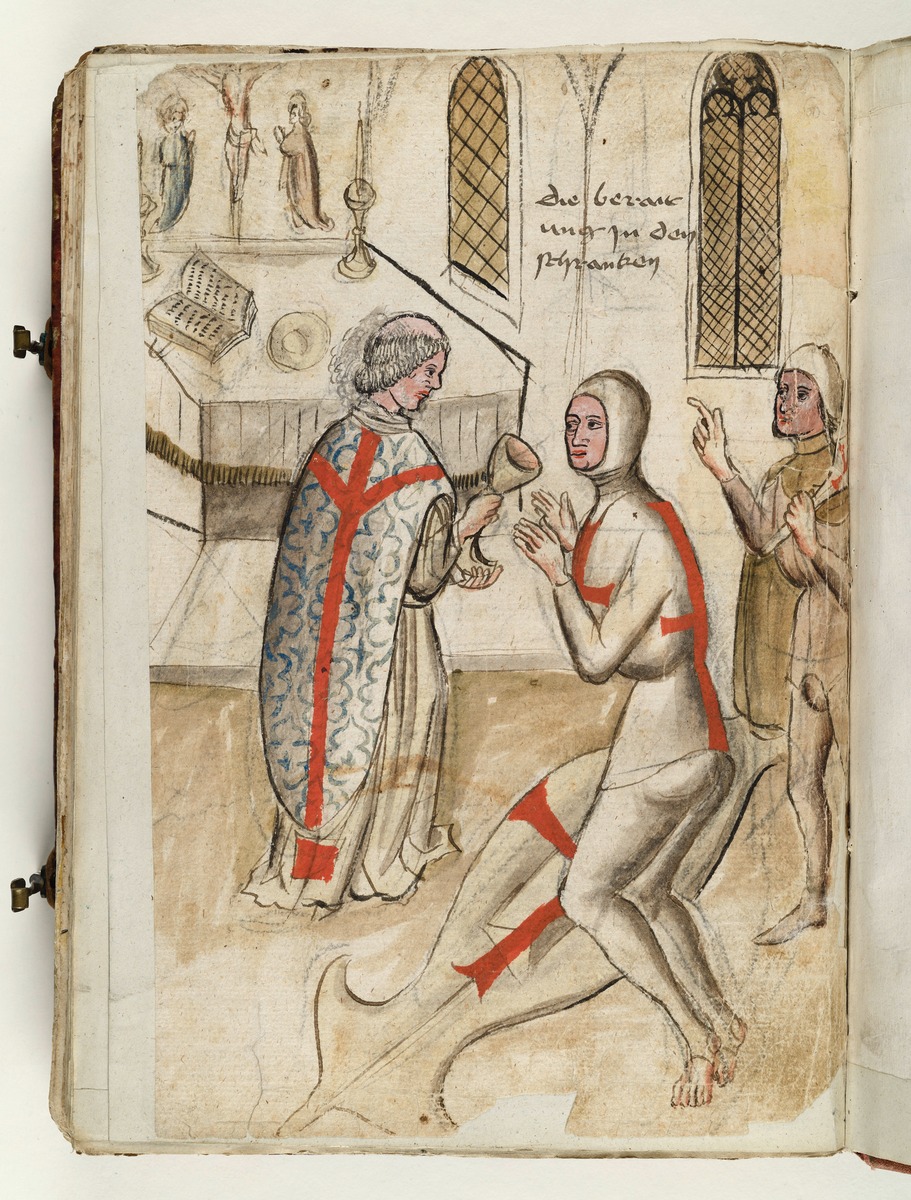 die berait
ung jn den
schrancken